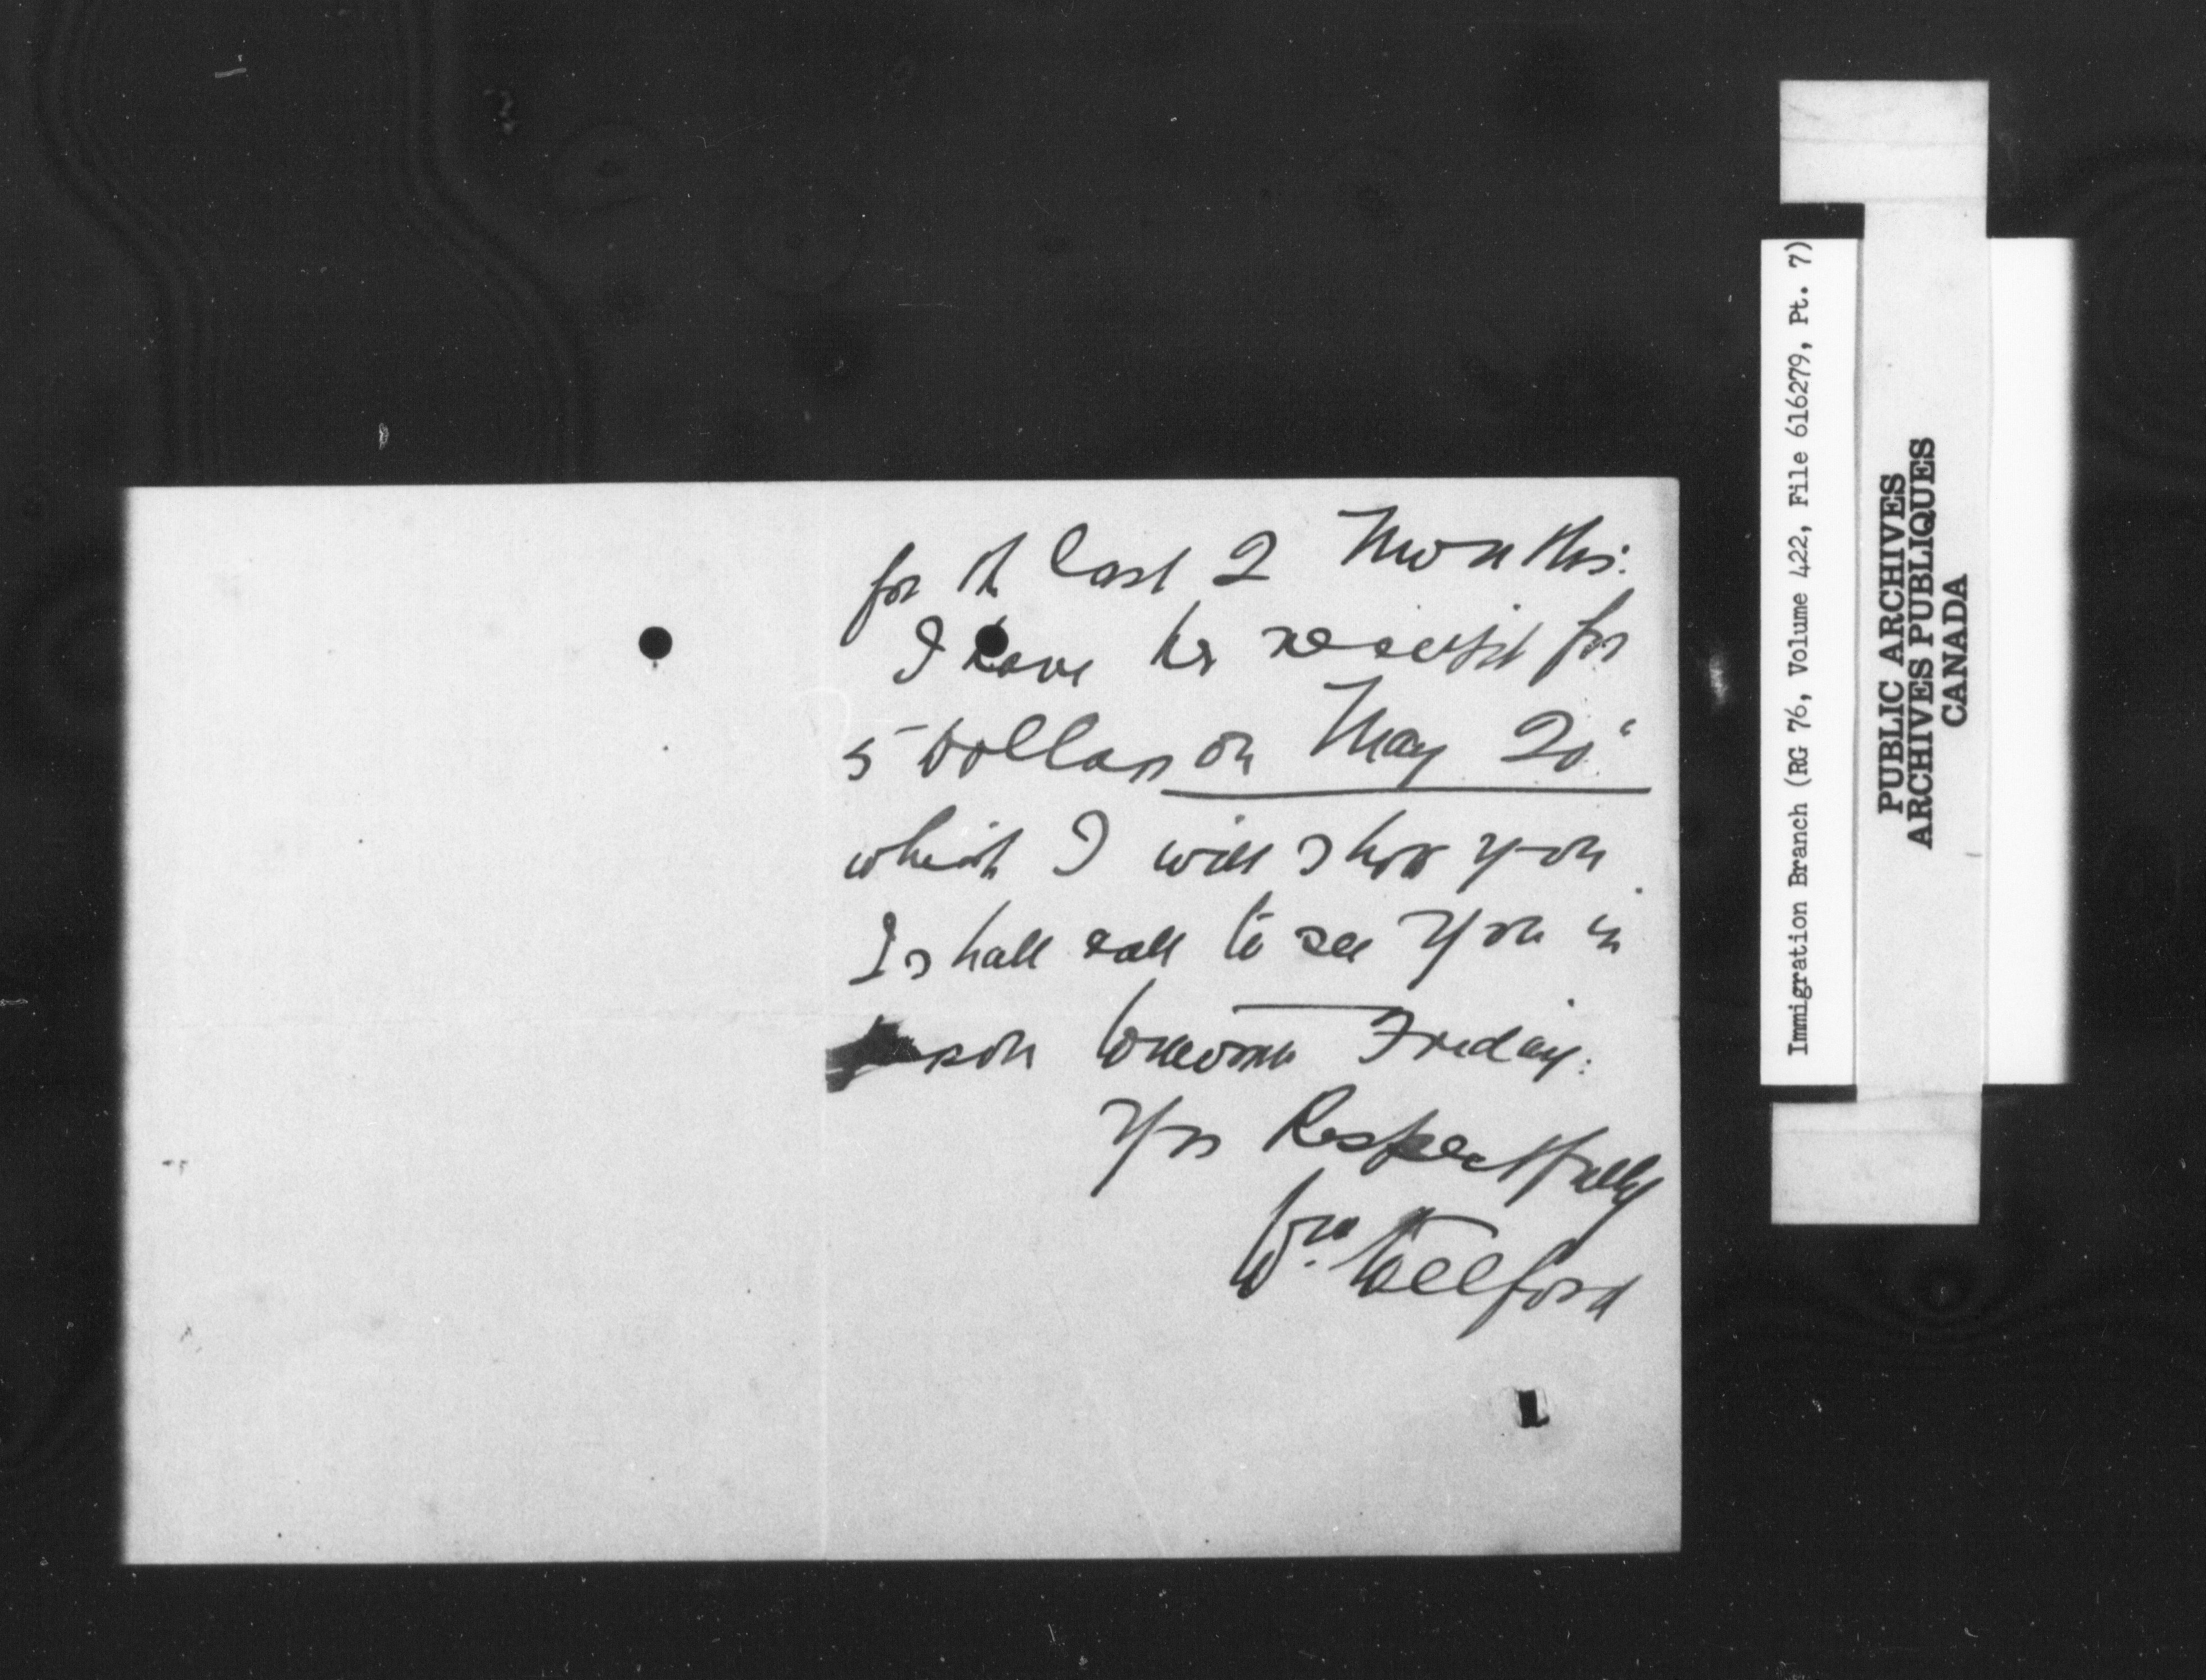 for th last 2 Months:
I have her receipt for
5 Dollars on May 20"
which I will show you.
I shall call to see you in
son tomorrow Friday:
Yrs Respectfully
Wm Wellford
Immigration Branch (RG 76, Volume 422, File 616279, Pt. 7)
PUBLIC ARCHIVES
ARCHIVES PUBLIQUES
CANADA